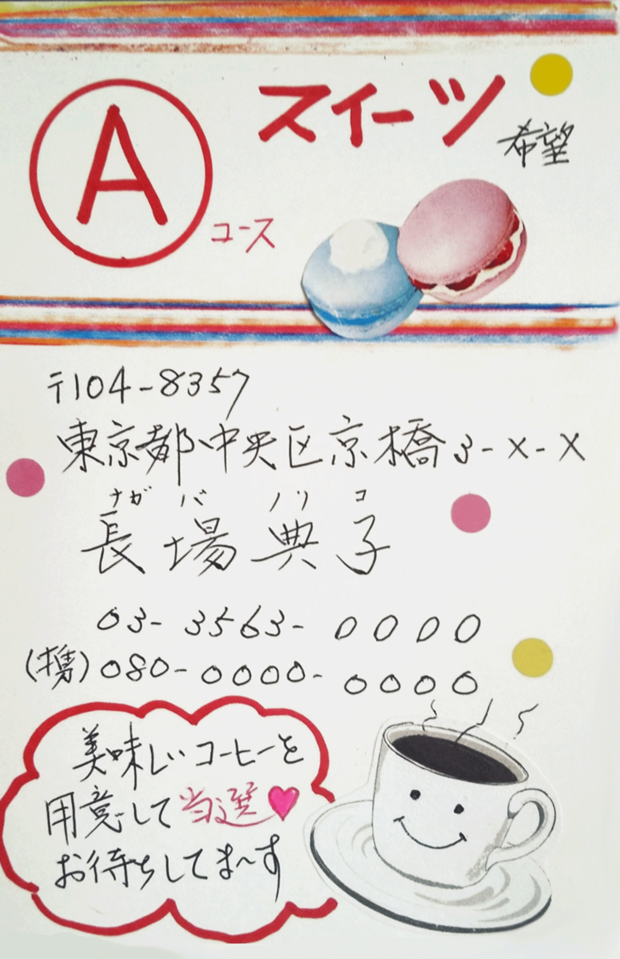 A
コース
スイーツ
希望
〒104-8357
東京都中央区京橋3-X-X
ナガ バ ノリ コ
長場典子
03-3563-0000
(携)080-0000-0000
美味しいコーヒーを
用意して当選♥
お待ちしてま〜す